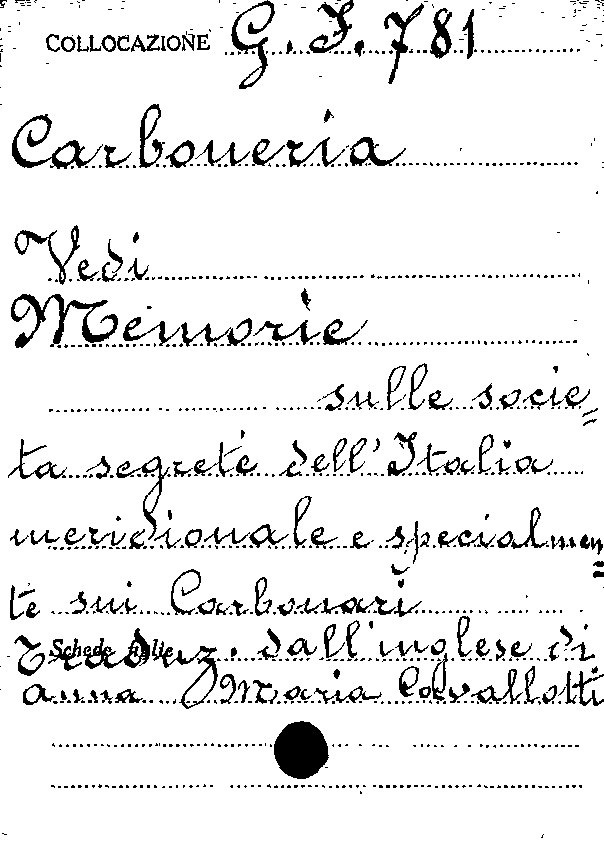 COLLOCAZIONE G. I. 781
Carboneria
Vedi
Memorie
sulle socie=
ta segrete dell'Italia
meridionale e specialmen=
te sui Carbonari
Schede figlie
Traduz. dall'inglese di
anna Maria Cavallotti